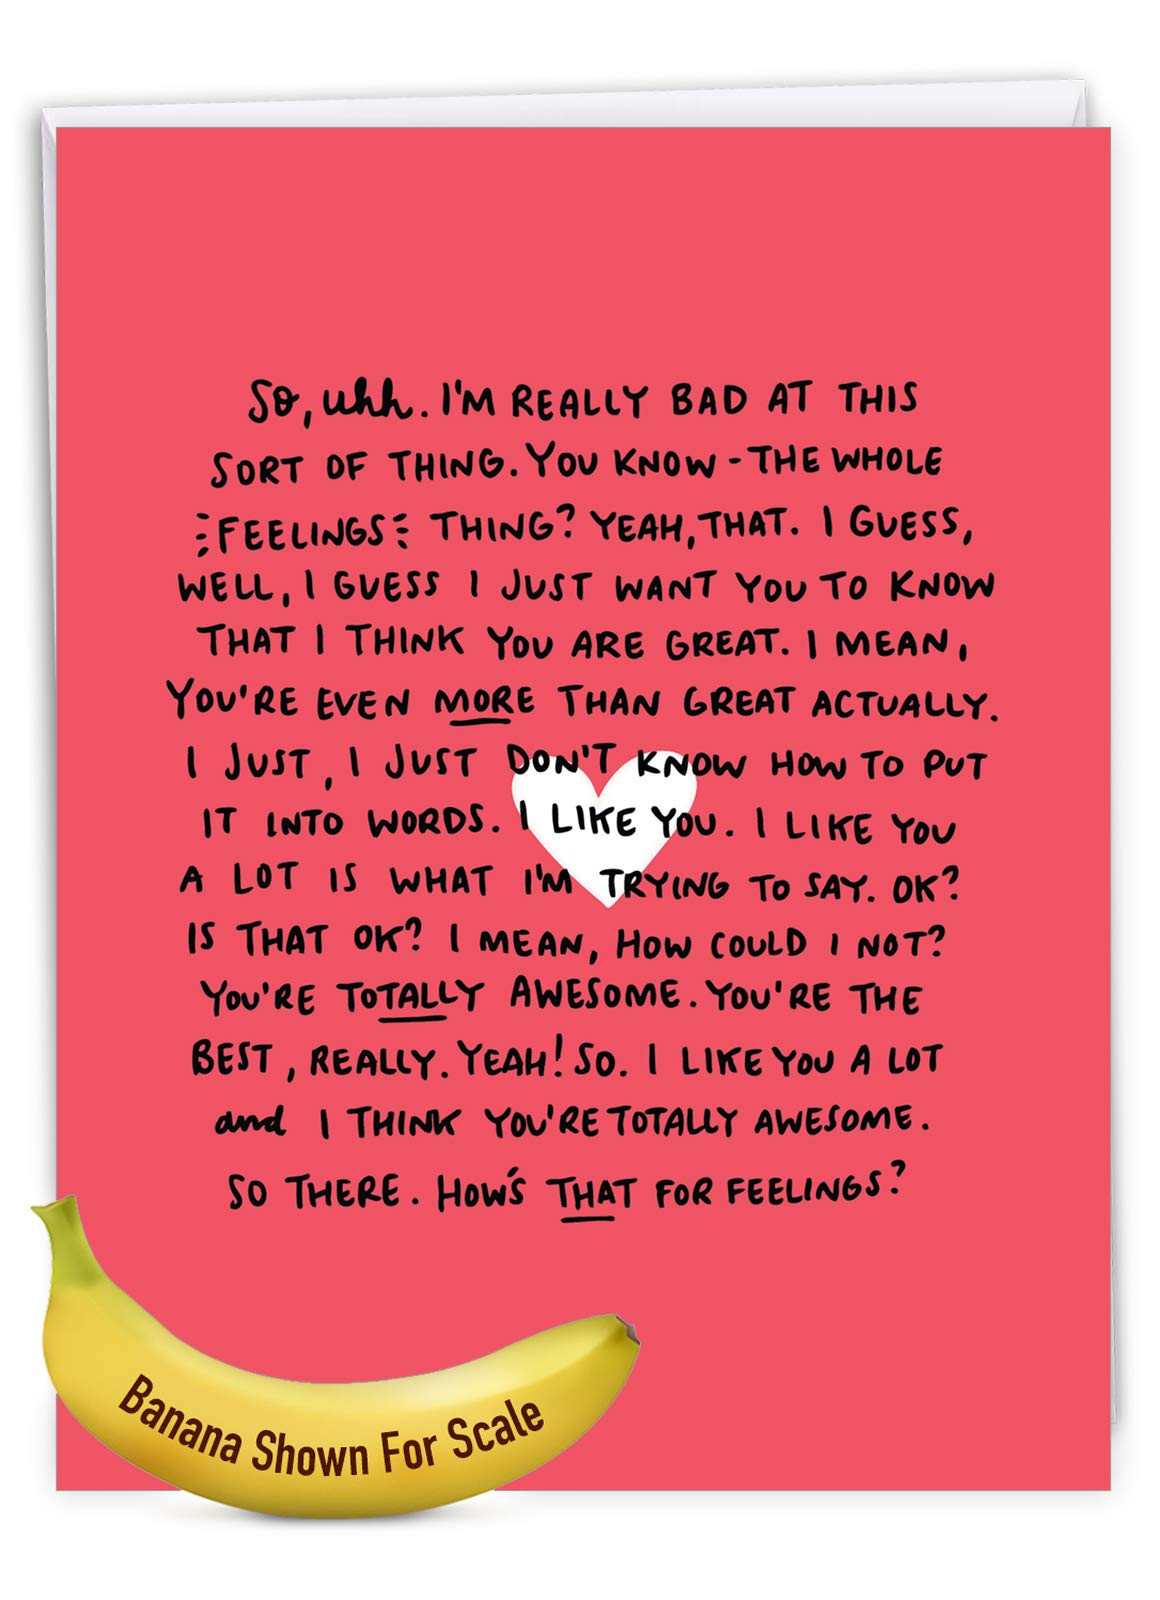 So, uhh. I'M REALLY BAD AT THIS
SORT OF THING. YOU KNOW - THE WHOLE
FEELINGS THING? YEAH, THAT. I GUESS,
WELL, I GUESS I JUST WANT YOU TO KNOW
THAT I THINK YOU ARE GREAT. I MEAN,
YOU'RE EVEN MORE THAN GREAT ACTUALLY.
I JUST, I JUST DON'T KNOW HOW TO PUT
IT INTO WORDS. I LIKE YOU. I LIKE YOU
A LOT IS WHAT I'M TRYING TO SAY. OK?
IS THAT OK? I MEAN, HOW COULD I NOT?
YOU'RE TOTALLY AWESOME. YOU'RE THE
BEST, REALLY. YEAH! SO. I LIKE YOU A LOT
and I THINK YOU'RE TOTALLY AWESOME.
SO THERE. HOW'S THAT FOR FEELINGS?
Banana Shown For Scale